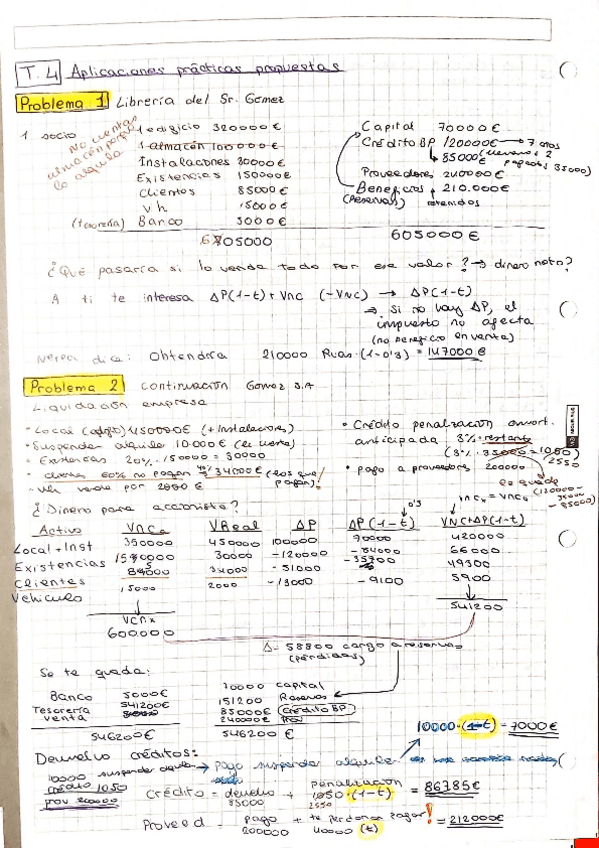 T.4 Aplicaciones prácticas propuestas
Problema 1 Librería del Sr. Gómez
1 socio
No cuentas almacén porque lo alquila
1 edificio 320000€
1 almacén 100000€
Instalaciones 30000€
Existencias 150000€
Clientes 85000€
Vh 15000€
(tesorería) Banco 5000€
605000
Capital 70000€
Crédito BP 120000€ → 7 años
85000€ (llevamos 2 pagados 35000)
Proveedores 240000€
Beneficios 210.000€
(Reservas) retenidos
605000€
¿Qué pasaría si lo venda todo por ese valor? → dinero neto?
A ti te interesa ΔP(1-t) + VNC (-VNC) → ΔP(1-t)
⇒ Si no hay ΔP, el
impuesto no afecta
(no beneficio en venta)
Nerea dice: Obtendría 210000 Rvas·(1-0'3) = 147000€
Problema 2 Continuación Gómez S.A
Liquidación empresa
• Local (edificio) 450000€ (+Instalaciones)
• Suspender alquiler 10000€
• Existencias 20%·150000 = 30000
• Clientes 60% no pagan 40% 34000€ (los que pagan)!
• Vh vende por 2000€
• Crédito penalización amort.
anticipada 3%·restante
(3%·35000=1050)
2550
• pago a proveedores 200000
lo que queda
(120000-35000=85000)
¿Dinero para accionista?
VNCx = VNCa
0'3
Activo VNCa VReal ΔP ΔP(1-t) VNC+ΔP(1-t)
Local+Inst 350000 450000 100000 70000 420000
Existencias 150000 30000 -120000 -84000 66000
Clientes 85000 34000 -51000 -35700 49300
Vehículo 15000 2000 -13000 -9100 5900
VCNx
600.000
541200
Δ- 58800 cargo a reservas
(pérdidas)
Se te queda:
Banco 5000€
Tesorería venta 541200€
546200€
70000 capital
151200 Reservas
85000€ Crédito BP
240000€ Prov
546200 €
10000·(1-t) = 7000€
Devuelvo créditos:
10000 suspender alquiler → pago suspender alquiler
crédito 1050
prov 200000
Crédito = devuelvo + penalización
85000 1050·(1-t) = 86785€
2550
Proveed = pago + te perdonan pagar! = 212000€
200000 40000 (t)